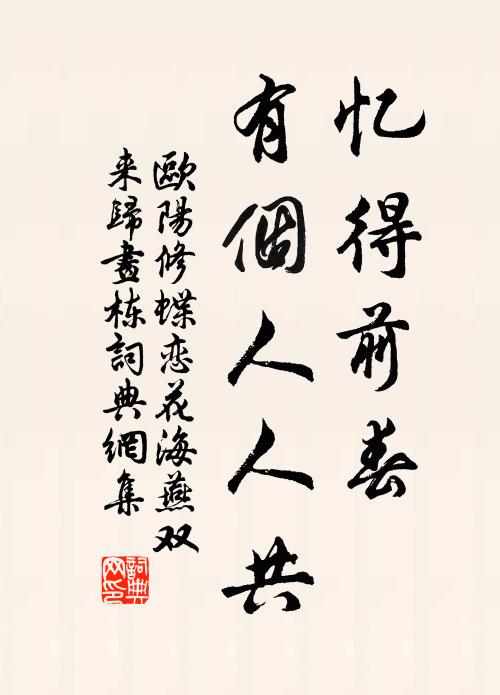 忆得前春
有個人人共
歐陽修蝶恋花海燕双
来歸畫栋詞典網集
詞典网印